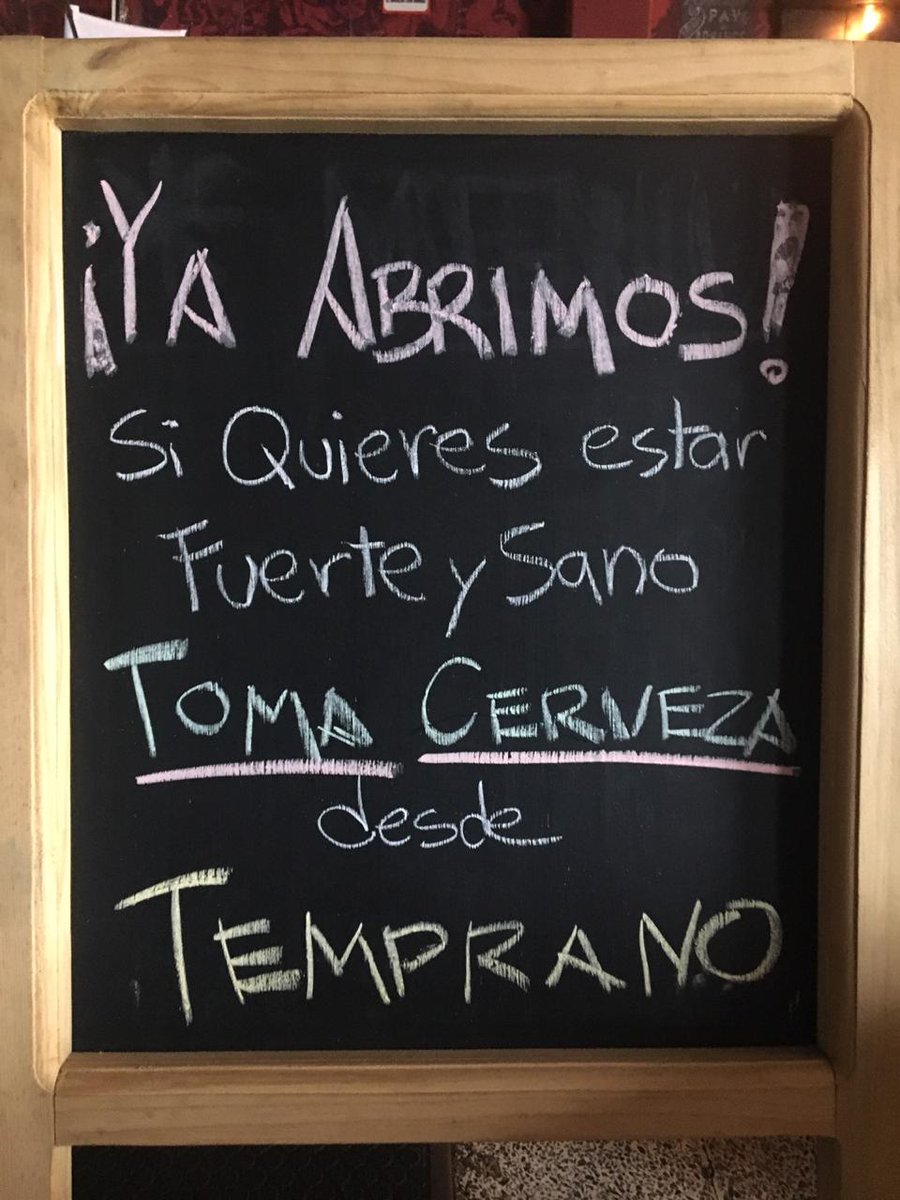 ¡YA ABRIMOS!
Si Quieres estar
Fuerte y Sano
TOMA CERVEZA
desde
TEMPRANO